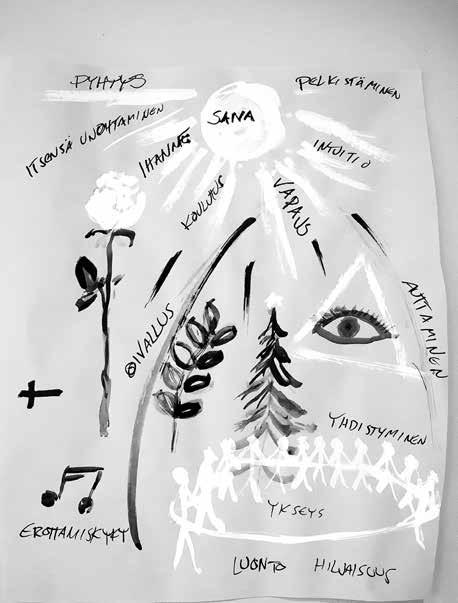 PYHYYS
PELKISTÄMINEN
ITSENSÄ UNOHTAMINEN
SANA
IHANNE
INTUITIO
KOULUTUS
VAPAUS
AUTTAMINEN
OIVALLUS
YHDISTYMINEN
YKSEYS
EROTTAMISKYKY
LUONTO HILJAISUUS